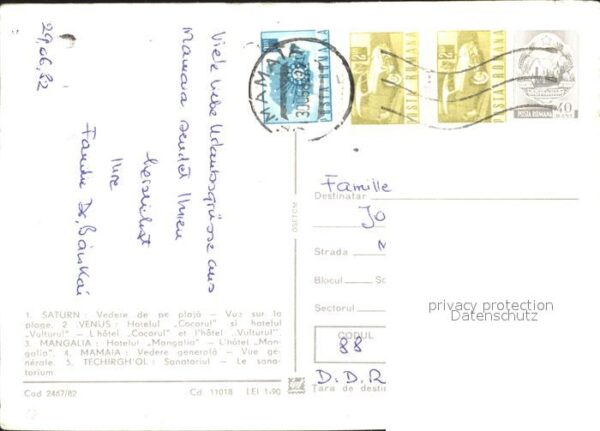 29.06.82
Viele liebe Urlaubsgrüsse aus
Mamaia sendet Ihnen
herzlichst
Ihre
Familie Dr. Bánkai
MAMAIA
POSTA ROMANA
POSTA ROMANA
40
BANI
POSTA ROMANA
Familie
Destinatar
Jo
Strada
Blocul Sc
Sectorul
CODUL
88
D.D.R
Țara de destin
privacy protection
Datenschutz
OSETCM
1. SATURN : Vedere de pe plajă — Vue sur la
plage. 2. VENUS : Hotelul „Cocorul" și hotelul
„Vulturul" — L'hôtel „Cocorul" et l'hôtel „Vulturul".
3. MANGALIA : Hotelul „Mangalia" — L'hôtel „Man-
galia". 4. MAMAIA : Vedere generală — Vue gé-
nérale. 5. TECHIRGHIOL : Sanatoriul — Le sana-
torium.
Cod 2467/82 Cd. 11018 LEI 1,90